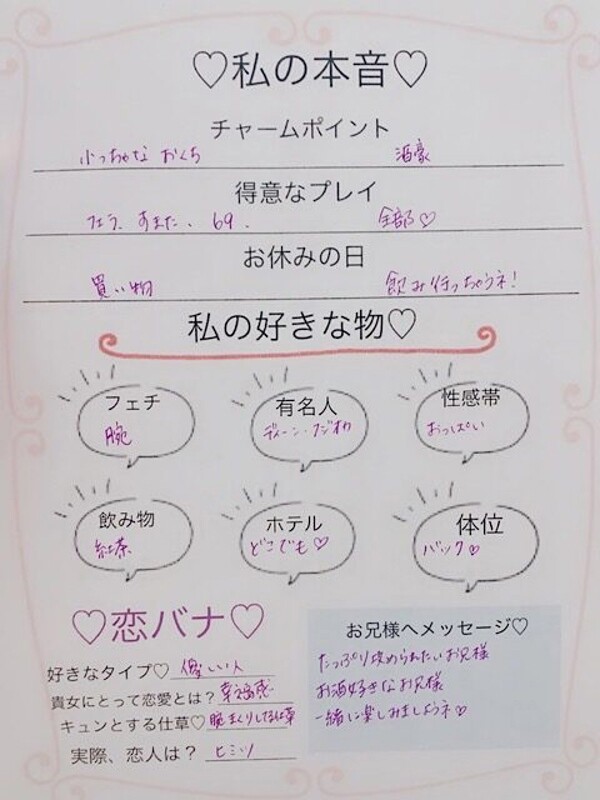 ♡私の本音♡
チャームポイント
小っちゃな おくち 酒豪
得意なプレイ
フェラ、すまた、69. 全部♡
お休みの日
買い物 飲み行っちゃうネ!
私の好きな物♡
フェチ 有名人 性感帯
腕 ディーン・フジオカ おっぱい
飲み物 ホテル 体位
紅茶 どこでも♡ バック♡
♡恋バナ♡
好きなタイプ♡ 優しい人
貴女にとって恋愛とは? 幸福感
キュンとする仕草♡ 腕まくりしてる仕草
実際、恋人は? ヒミツ
お兄様へメッセージ♡
たっぷり攻められたいお兄様
お酒好きなお兄様
一緒に楽しみましょうネ♡